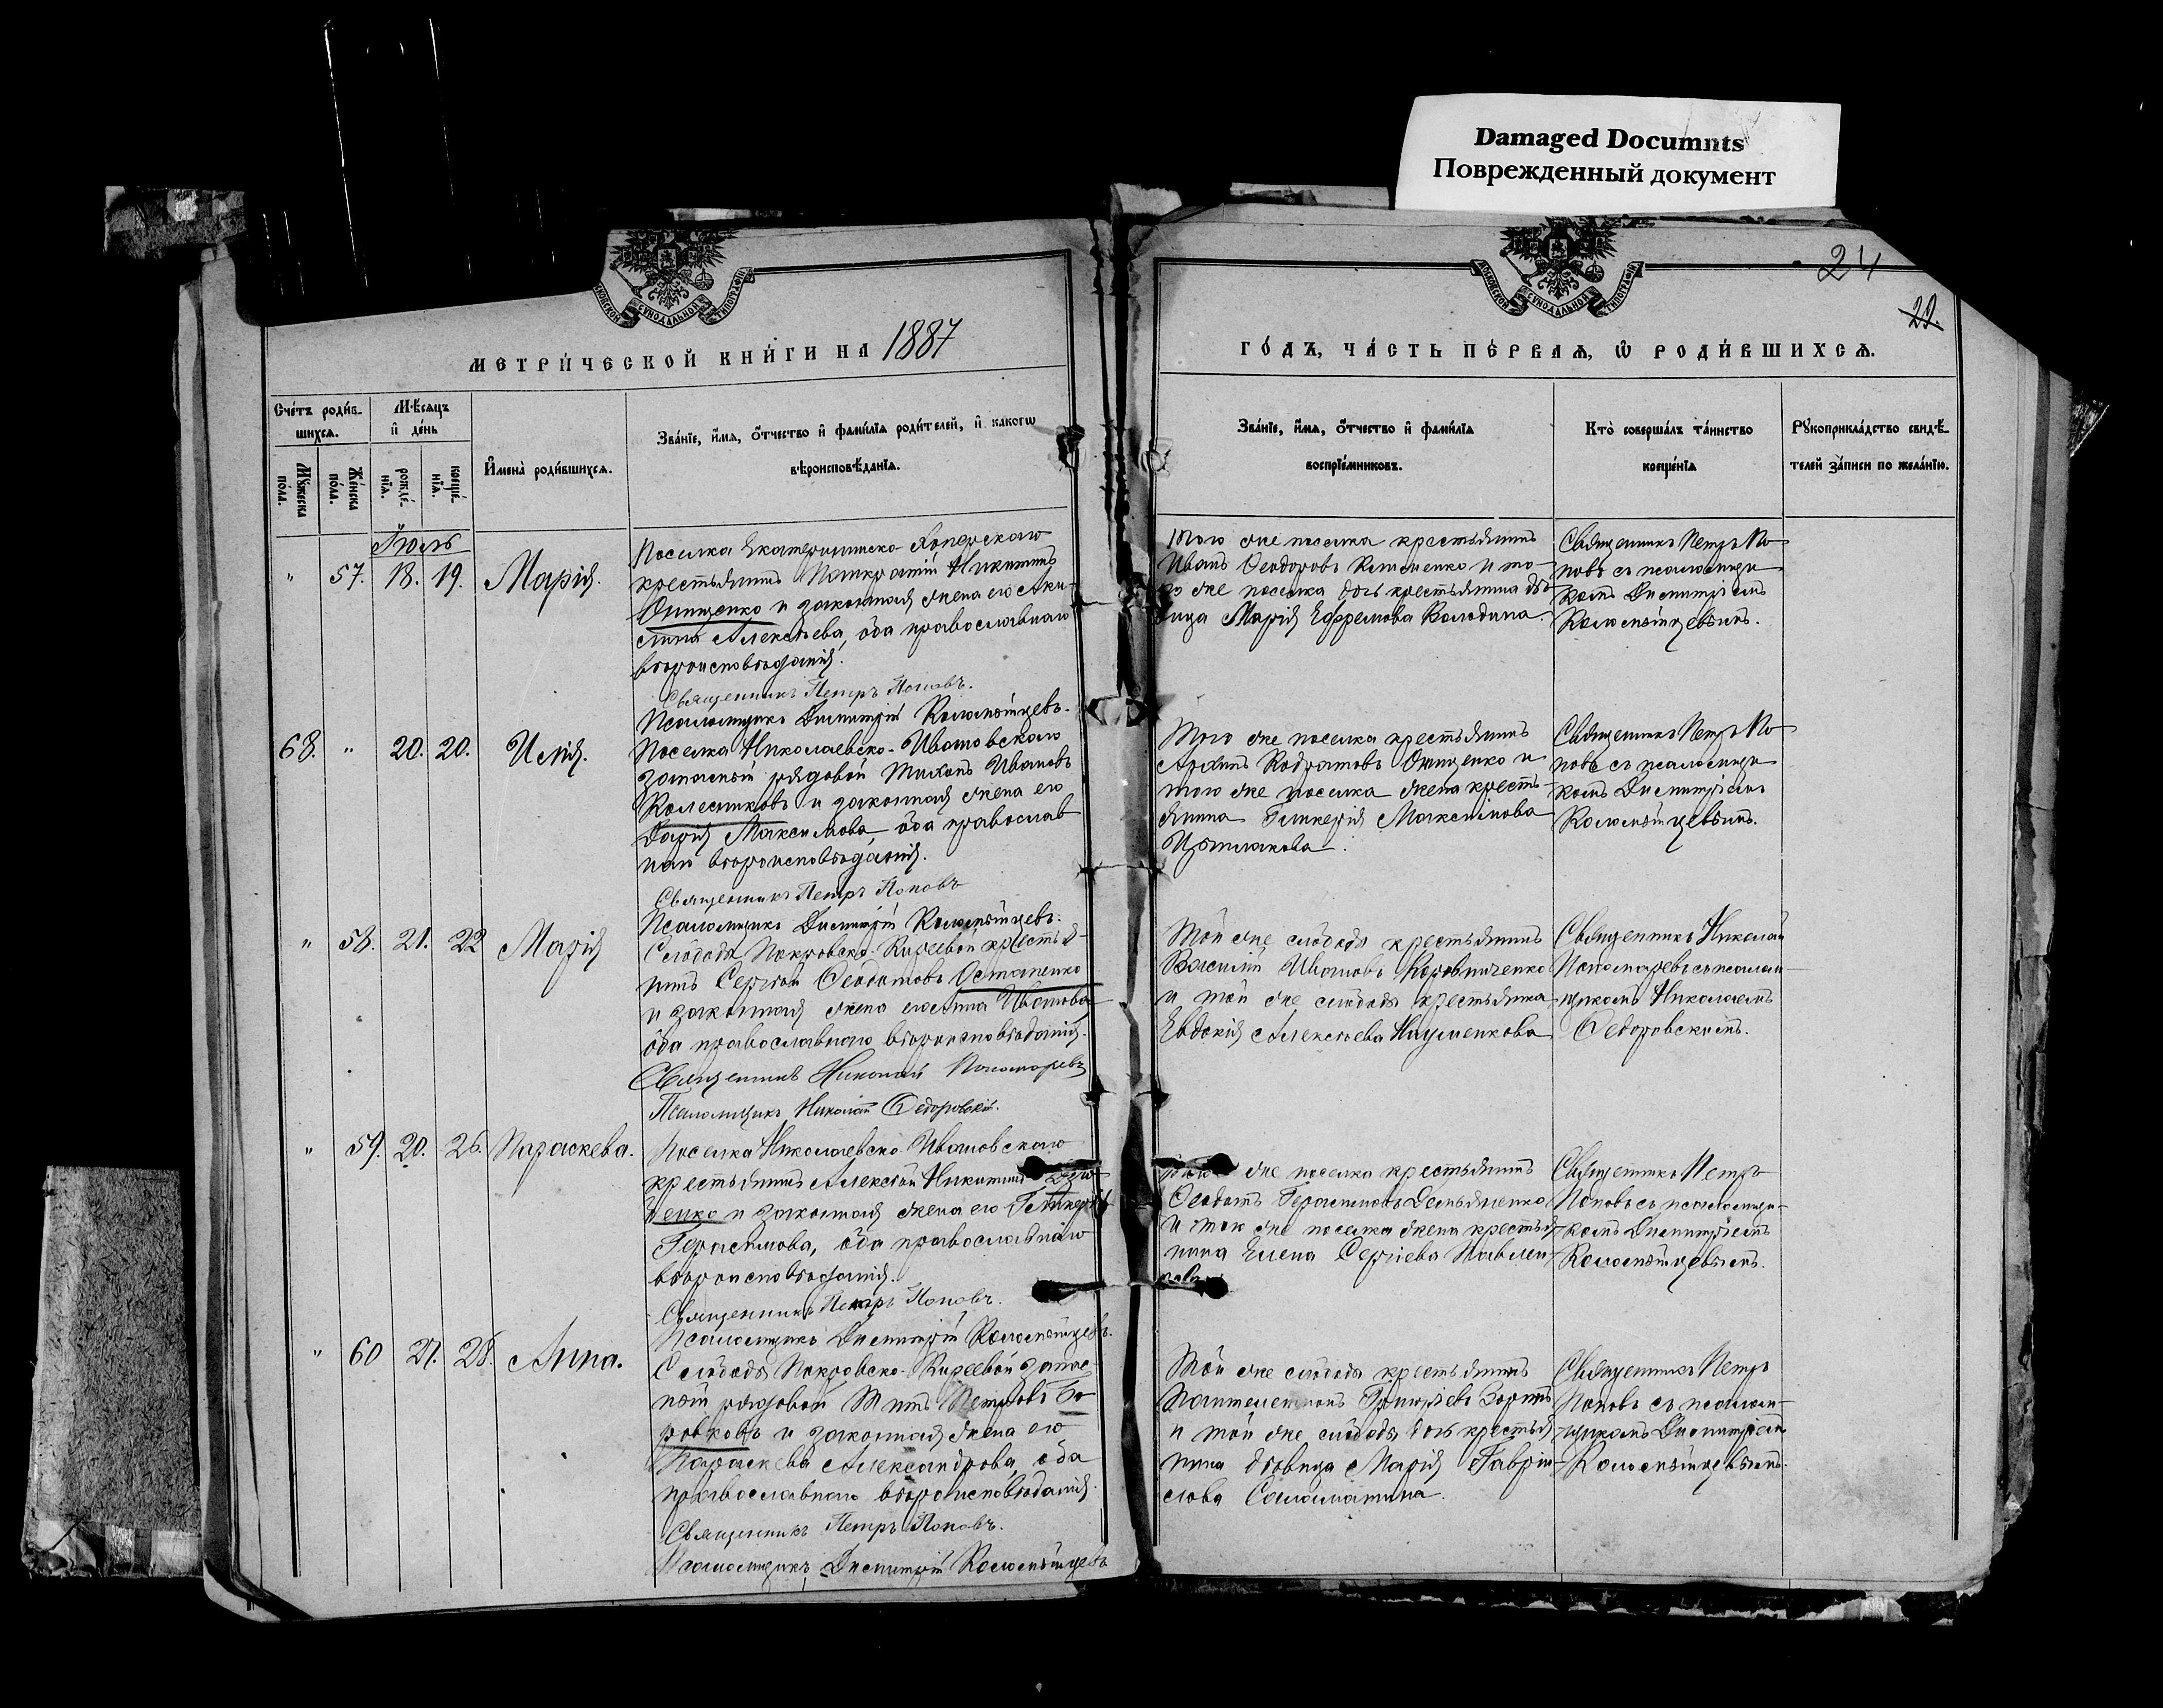 Damaged Documnts
Поврежденный документ
МОСКОВСКОЙ СѴНОДАЛЬНОЙ ТИПОГРАФІИ
МОСКОВСКОЙ СѴНОДАЛЬНОЙ ТИПОГРАФІИ
24
22.
МЕТРИ́ЧЕСКОЙ КНИ́ГИ НА 1887
ГО́ДЪ, ЧА́СТЬ ПЕ́РВАѦ, Ѡ҆ РОДИ́ВШИХСѦ.
Сче́тъ роди́в-
шихсѧ.
Мѣ́сѧцъ
и҆ де́нь
Мꙋ́жеска
по́ла.
Же́нска
по́ла.
рожде́-
нїѧ.
креще́-
нїѧ.
И҆мена̀ роди́вшихсѧ.
Зва́нїе, и҆́мѧ, ѻ҆́тчество и҆ фами́лїѧ роди́телей, и҆ како́гѡ
вѣроисповѣ́данїѧ.
Зва́нїе, и҆́мѧ, ѻ҆́тчество и҆ фами́лїѧ
воспрїе́мниковъ.
Кто̀ соверша́лъ та́инство
креще́нїѧ
Рꙋкоприкла́дство свидѣ́-
телей за́писи по жела́нїю.
Іюль
" 57. 18. 19. Марія.
Поселка Екатериниско-Хоперскаго
крестьянинъ Панкратій Никитинъ
Онищенко и законная жена его Аку-
лина Алексѣева, оба православнаго
вѣроисповѣданія.
Священникъ Петръ Поповъ.
Псаломщикъ Димитрій Коломѣйцевъ.
Того же поселка крестьянинъ
Иванъ Ѳеодоровъ и то-
го же поселка дочь крестьянина дѣ-
вица Марія Ефремова Колодина.
Священникъ Петръ По-
повъ съ псаломщи-
комъ Димитріемъ
Коломѣйцевымъ.
68. " 20. 20. Илія.
Поселка Николаевско-Ивановскаго
запасный рядовой Тихонъ Ивановъ
Колесниковъ и законная жена его
Дарія Максимова, оба православ
наго вѣроисповѣданія.
Священникъ Петръ Поповъ
Псаломщикъ Димитрій Коломѣйцевъ.
Того же поселка крестьянинъ
Архипъ Кодратовъ Онищенко и
того же поселка жена кресть-
янина Гликерія Максимова
Священникъ Петръ По-
повъ съ псаломщи-
комъ Димитріемъ
Коломѣйцевымъ.
" 58. 21. 22 Марія
Слободы Покровско-Киреевой крестья-
нинъ Сергѣй Ѳеодотовъ Остапенко
и законная жена его Анна Иванова
оба православнаго вѣроисповѣданія.
Священникъ Николай Пономаревъ
Псаломщикъ Николай Ѳедоровскій.
Той же слободы крестьянинъ
Василій Ивановъ Коровниченко
и той же слободы крестьянка
Евдокія Алексѣева Науменкова
Священникъ Николай
Пономаревъ съ псалом-
щикомъ Николаемъ
Ѳедоровскимъ.
" 59. 20. 26. Параскева.
Поселка Николаевско-Ивановскаго
крестьянинъ Алексѣй Никитинъ
денко и законная жена его Гликерія
Герасимова, оба православнаго
вѣроисповѣданія.
Священникъ Петръ Поповъ.
Псаломщикъ Димитрій Коломѣйцевъ.
того же поселка крестьянинъ
Ѳеодотъ Герасимовъ Демьяненко
и того же поселка жена крестья-
нина Елена Сергіева Павлен-
кова
Священникъ Петръ
Поповъ съ псаломщи-
комъ Димитріемъ
Коломѣйцевымъ.
" 60 27. 28. Анна.
Слободы Покровско-Киреевой запас-
ный рядовой Титъ Петровъ Бо
ровковъ и законная жена его
Параскева Александрова, оба
православнаго вѣроисповѣданія.
Священникъ Петръ Поповъ.
Псаломщикъ Димитрій Коломѣйцевъ
Той же слободы крестьянинъ
Пантелеимонъ Григорьевъ Зоринъ
и той же слободы дочь крестья-
нина дѣвица Марія Гаврі-
лова Саломатина.
Священникъ Петръ
Поповъ съ псалом-
щикомъ Димитріемъ
Коломѣйцевымъ.